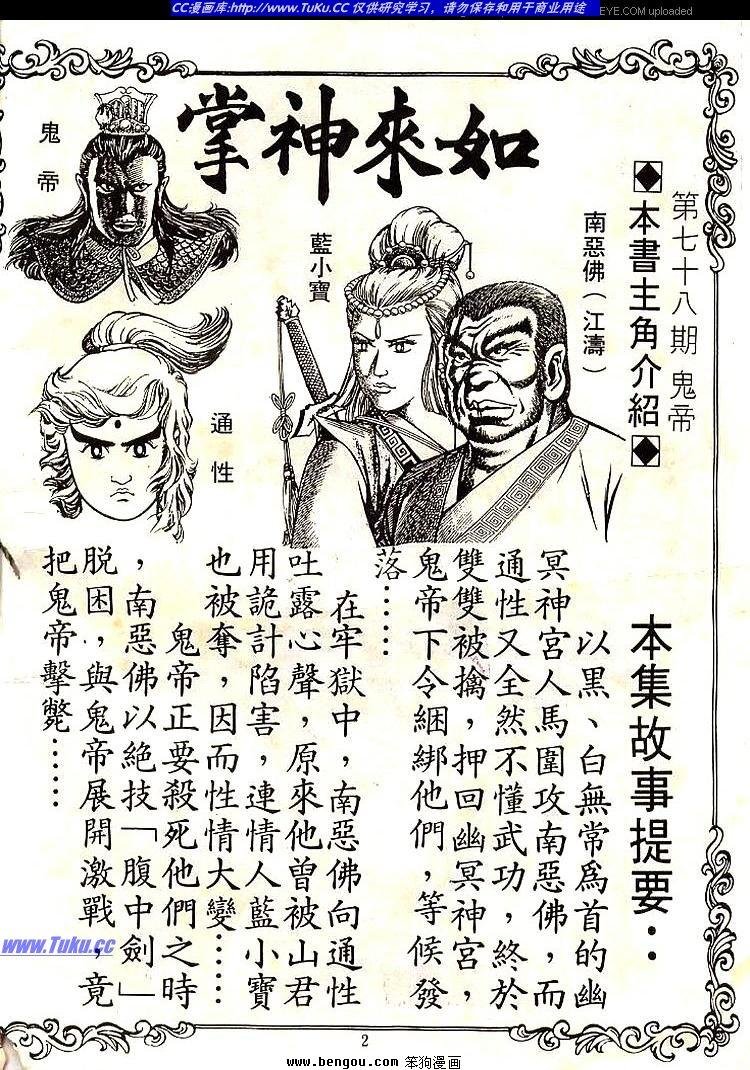 CC漫画库:http://www.TuKu.CC 仅供研究学习，请勿保存和用于商业用途
EYE.COM uploaded
如來神掌
第七十八期 鬼帝
◆本書主角介紹◆
南惡佛（江濤）
藍小寶
鬼帝
通性
本集故事提要：
以黑、白無常爲首的幽
冥神宮人馬圍攻南惡佛，而
通性又全然不懂武功，終於
雙雙被擒，押回幽冥神宮，
鬼帝下令綑綁他們，等候發
落……
在牢獄中，南惡佛向通性
吐露心聲，原來他曾被山君
用詭計陷害，連情人藍小寶
也被奪，因而性情大變……
鬼帝正要殺死他們之時
，南惡佛以絕技「腹中劍」
脫困，與鬼帝展開激戰，竟
把鬼帝擊斃……
www.Tuku.cc
2
www.bengou.com 笨狗漫画